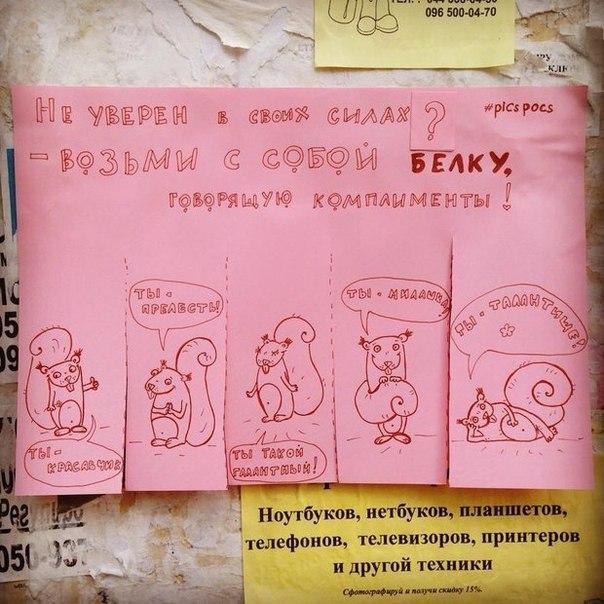 096 500-04-70
Не уверен в своих силах?
#plcspocs
- возьми с собой белку,
говорящую комплименты!
Ты -
красавчик
Ты -
прелесть!
Ты такой
галантный!
Ты - милашка!
Ты - талантище!
Ноутбуков, нетбуков, планшетов,
телефонов, телевизоров, принтеров
и другой техники
Сфотографируй и получи скидку 15%.